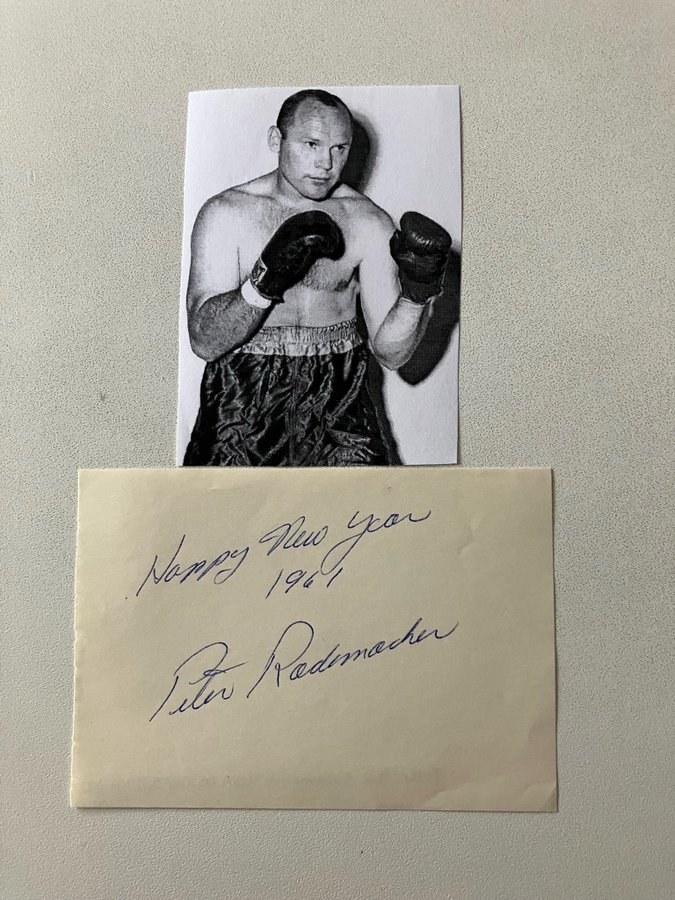 Happy New Year
1961
Peter Rademacher